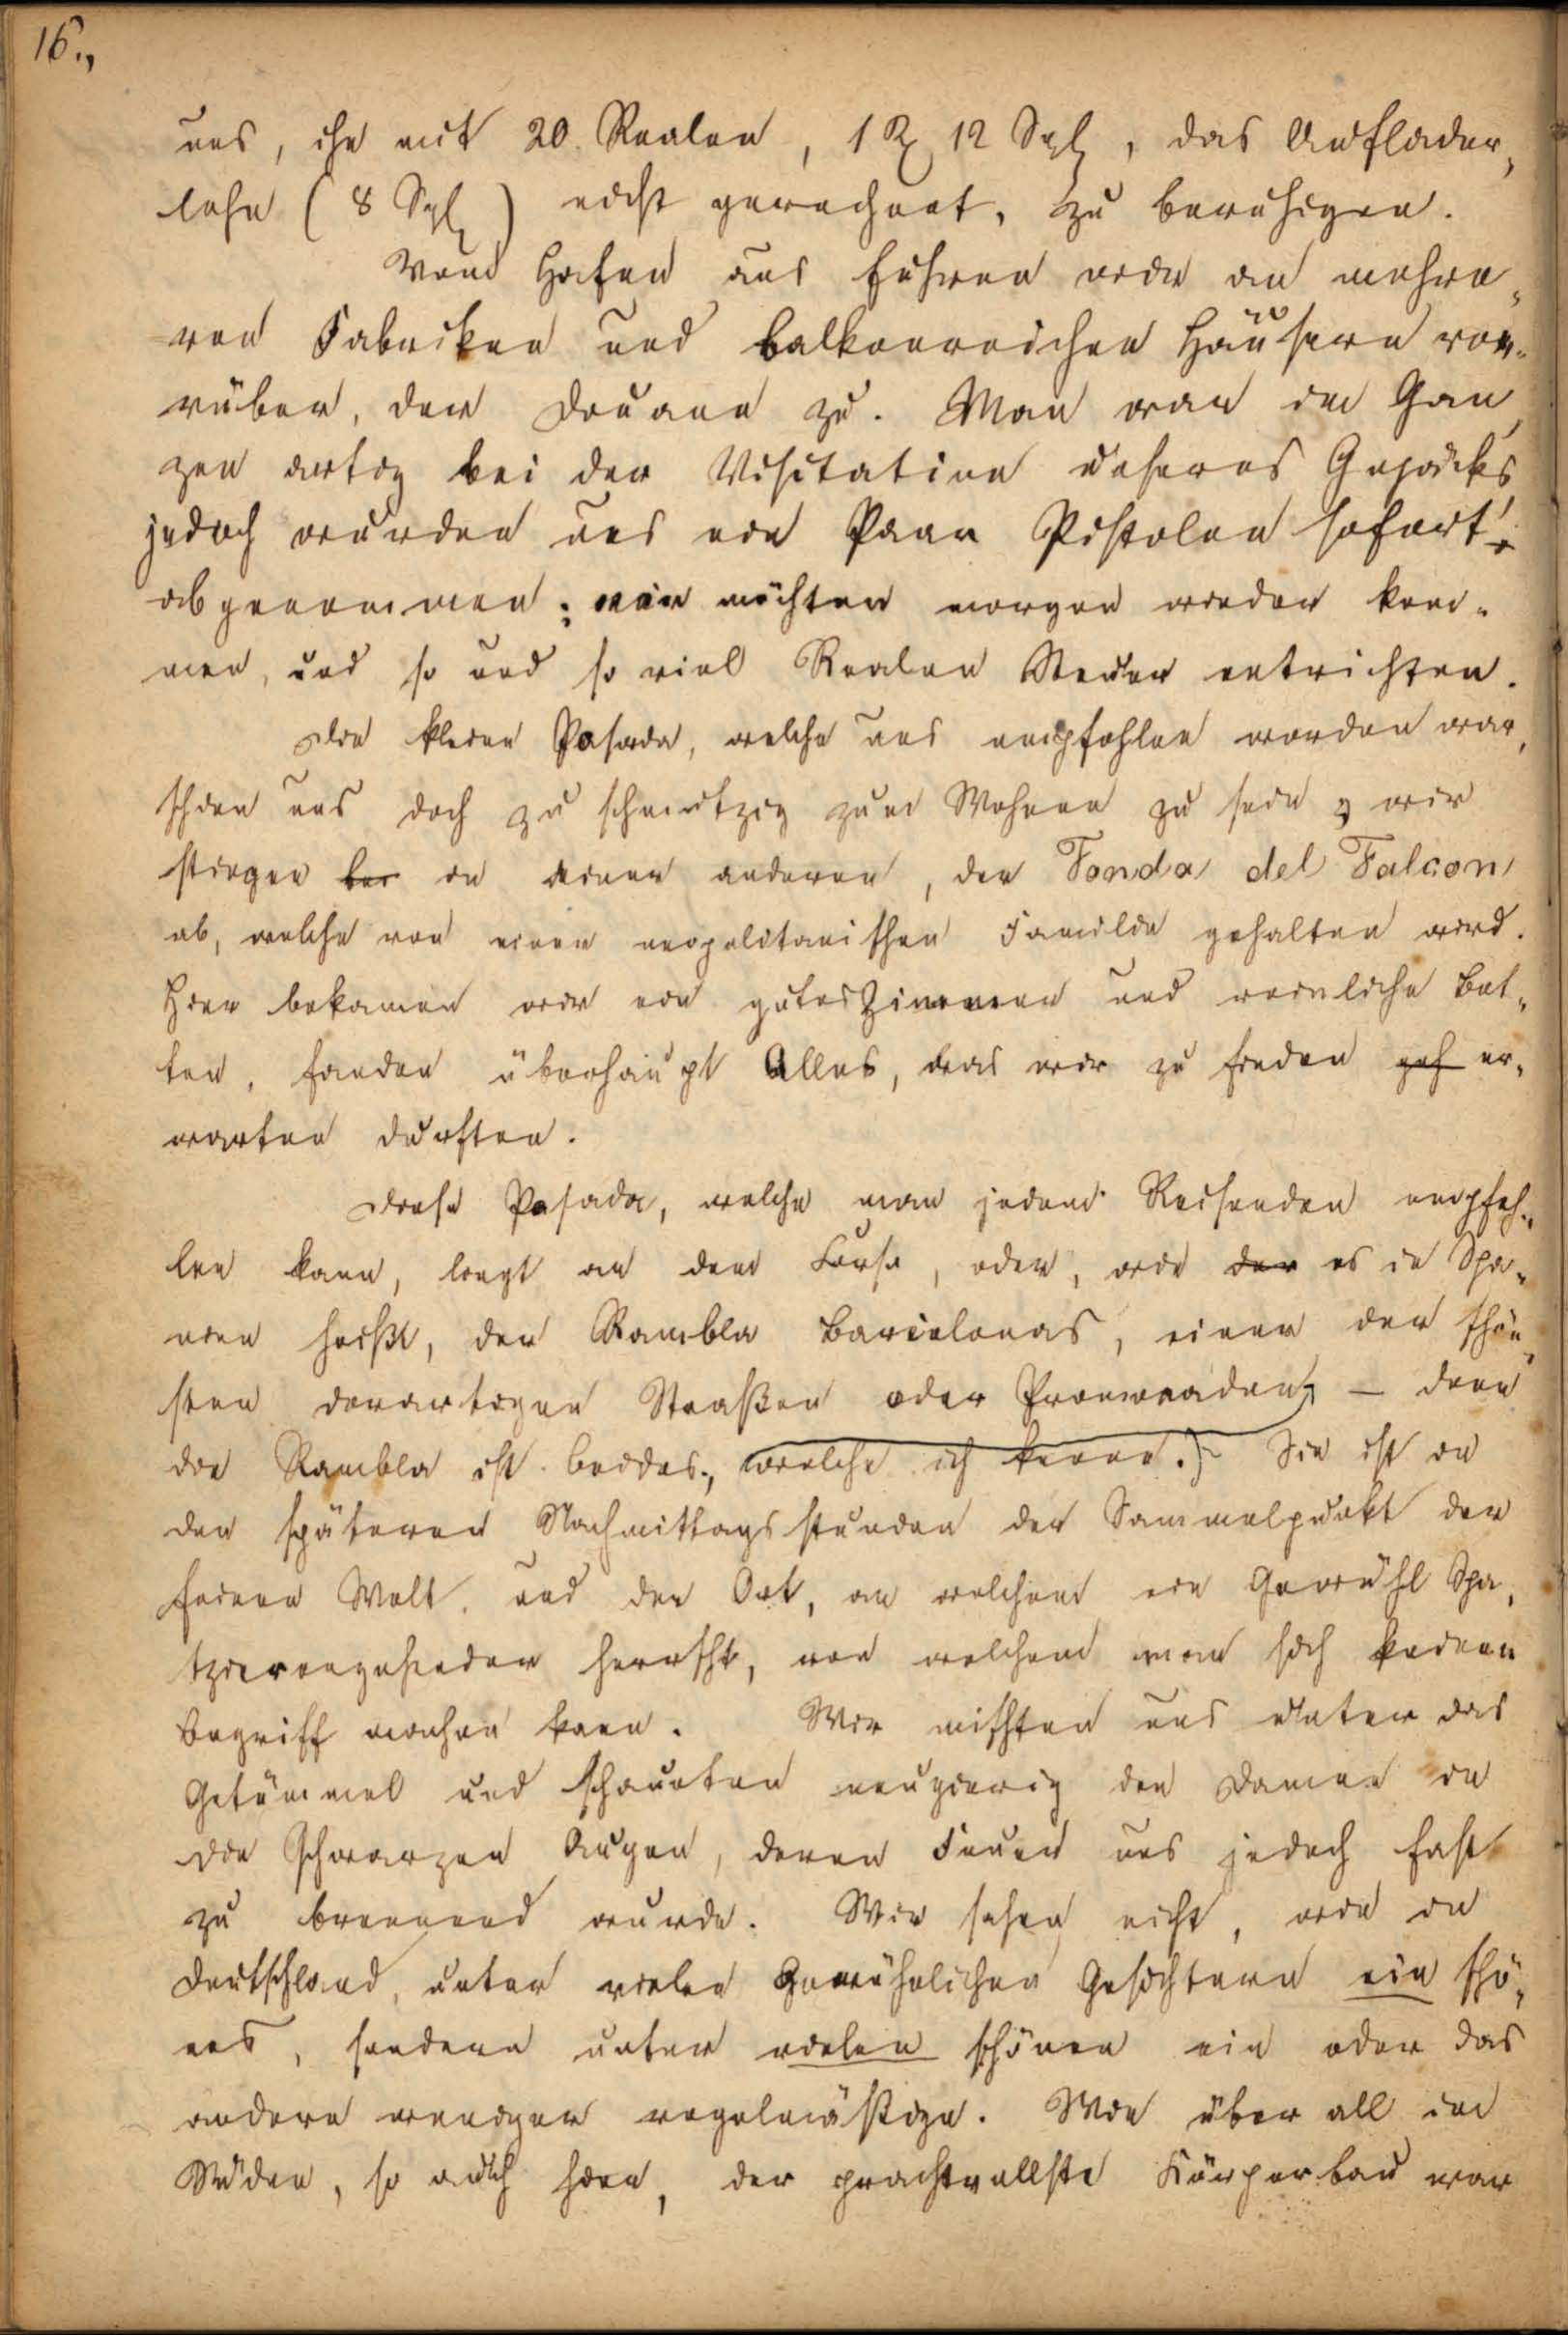 16.,
uns, ihn mit 20. Realen, 1 Rℓ 12 Sgl, das Auflader-
lohn (8 Sgl) nicht gerechnet, zu beruhigen.
Vom Hafen aus fuhren wir an mehre-
ren Fabriken und balkonreichen Häusern vor-
rüber, der Douane zu. Man war im Gan-
zen artig bei der Visitation unseres Gepäcks
jedoch wurden uns ein Paar Pistolen sofort
abgenommen; wir möchten morgen wieder kom-
men, und so und so viel Realen Steuer entrichten.
Die kleine Posada, welche uns empfohlen worden war,
schien uns doch zu schmutzig zum Wohnen zu sein & wir
stiegen bei in einer anderen, der Fonda del Falcon
ab, welche von einer neapolitanischen Familie gehalten wird.
Hier bekamen wir ein gutes Zimmer und reinliche Bet-
ten, fanden überhaupt Alles, was wir zu finden geh er-
warten durften.
Diese Posada, welche man jedem Reisenden empfeh-
len kann, liegt an dem Corso, oder, wie der es in Spa-
nien heißt, der Rambla Barcelonas, einer der schön-
sten derartigen Straßen oder Promenaden, – denn
die Rambla ist beides, welche ich kenne. Sie ist in
den späteren Nachmittagsstunden der Sammelpunkt der
feinen Welt, und der Ort, an welchem ein Gewühl Spa-
tzierengehender herrscht, von welchem man sich keinen
Begriff machen kann. Wir mischten uns unter das
Getümmel und schauten neugierig den Damen in
die schwarzen Augen, deren Feuer uns jedoch fast
zu brennend wurde. Wir sahen nicht, wie in
Deutschland, unter vielen gewöhnlichen Gesichtern ein schö-
nes, sondern unter vielen schönen ein oder das
andere weniger regelmäßige. Wie über all im
Süden, so auch hier, der prachtvollste Körperbau war